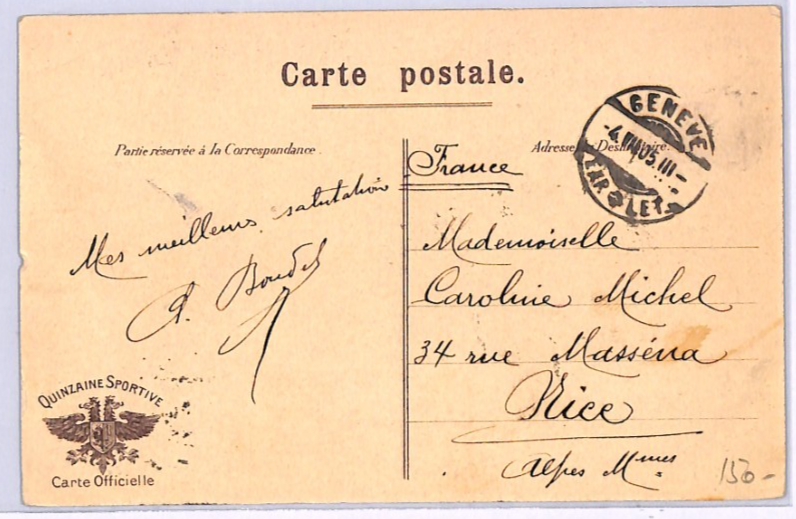 Carte postale.
Partie réservée à la Correspondance.
Adresse du Destinataire.
GENEVE
-4.VII.05.III-
EXP. LET.
France
Mes meilleurs salutation
A. Boudet
Mademoiselle
Caroline Michel
34 rue Masséna
Nice
Alpes Mmes
QUINZAINE SPORTIVE
Carte Officielle
150-